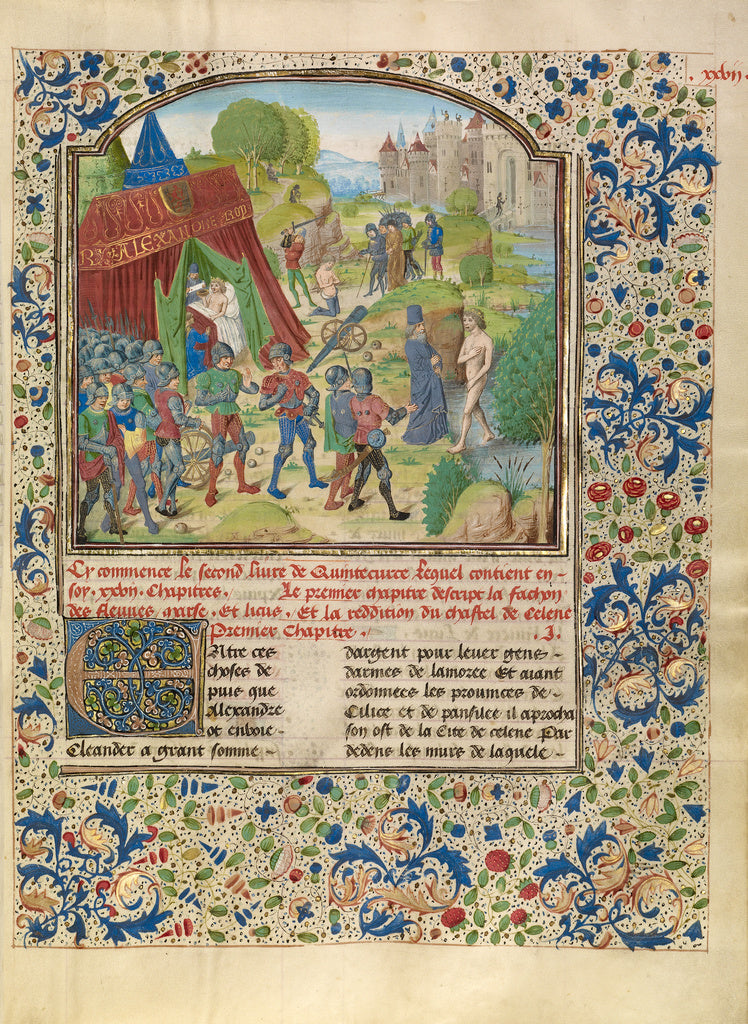 . xxvij .
ALEXANDRE
Cy commence le second liure de Quintecurce lequel contient en-
soy. Chapitres. Le premier chapitre descript la fachon
des fleuues marse. Et licus. Et la reddicion du chastel de Celene
Premier Chapitre. .I.
ENtre ces
choses de
puis que
Alexandre
ot enuoie
Cleander a grant somme
dargent pour leuer gens
darmes de lamoree Et aiant
ordonnees les prouinces de
Cilice et de panfilee il aprocha
son ost de la Cite de celene Par
dedens les murs de laquele